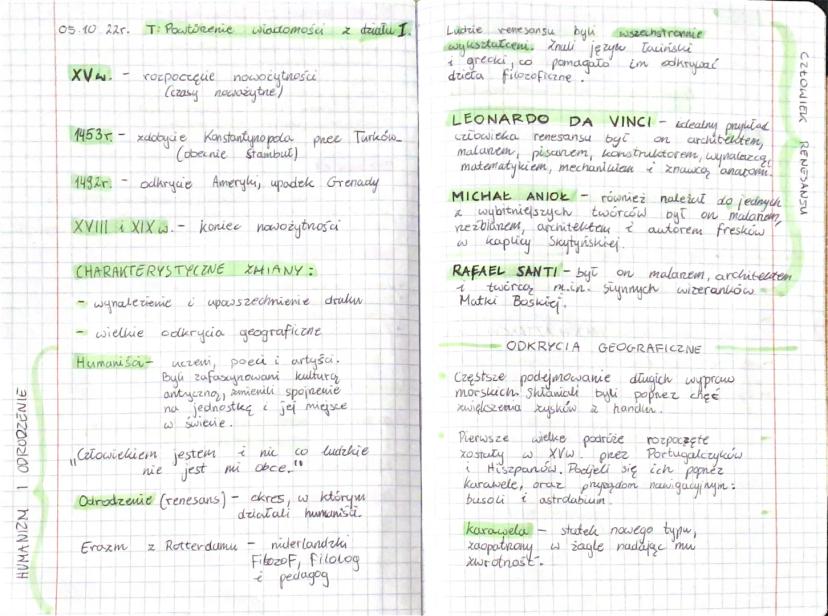 05.10.22r. T: Powtórzenie wiadomości z działu I.
XVw. - rozpoczęcie nowożytności
(czasy nowożytne)
1453r. - zdobycie Konstantynopola przez Turków
(obecnie Stambuł)
1492r. - odkrycie Ameryki, upadek Grenady
XVIII i XIXw. - koniec nowożytności
CHARAKTERYSTYCZNE ZMIANY:
- wynalezienie i upowszechnienie druku
- wielkie odkrycia geograficzne
HUMANIZM I ODRODZENIE
Humaniści - uczeni, poeci i artyści.
Byli zafascynowani kulturą
antyczną, zmienili spojrzenie
na jednostkę i jej miejsce
w świecie.
„Człowiekiem jestem i nic co ludzkie
nie jest mi obce."
Odrodzenie (renesans) - okres, w którym
działali humaniści.
Erazm z Rotterdamu - niderlandzki
filozof, filolog
i pedagog
Ludzie renesansu byli wszechstronnie
wykształceni. Znali język łaciński
i grecki, co pomagało im odkrywać
dzieła filozoficzne.
CZŁOWIEK RENESANSU
LEONARDO DA VINCI - idealny przykład
człowieka renesansu był on architektem,
malarzem, pisarzem, konstruktorem, wynalazcą,
matematykiem, mechanikiem i znawcą anatomii.
MICHAŁ ANIOŁ - również należał do jednych
z wybitniejszych twórców był on malarzem,
rzeźbiarzem, architektem i autorem fresków
w kaplicy Sykstyńskiej.
RAFAEL SANTI - był on malarzem, architektem
i twórcą m.in. słynnych wizerunków
Matki Boskiej.
ODKRYCIA GEOGRAFICZNE
Częstsze podejmowanie długich wypraw
morskich. Skłaniali byli poprzez chęć
zwiększenia zysków z handlu.
Pierwsze wielkie podróże rozpoczęte
zostały w XVw. przez Portugalczyków
i Hiszpanów. Podjeli się ich poprzez
karawele, oraz przyrządom nawigacyjnym:
busoli i astrolabium.
karawela - statek nowego typu,
zaopatrzony w żagle nadając mu
zwrotność.